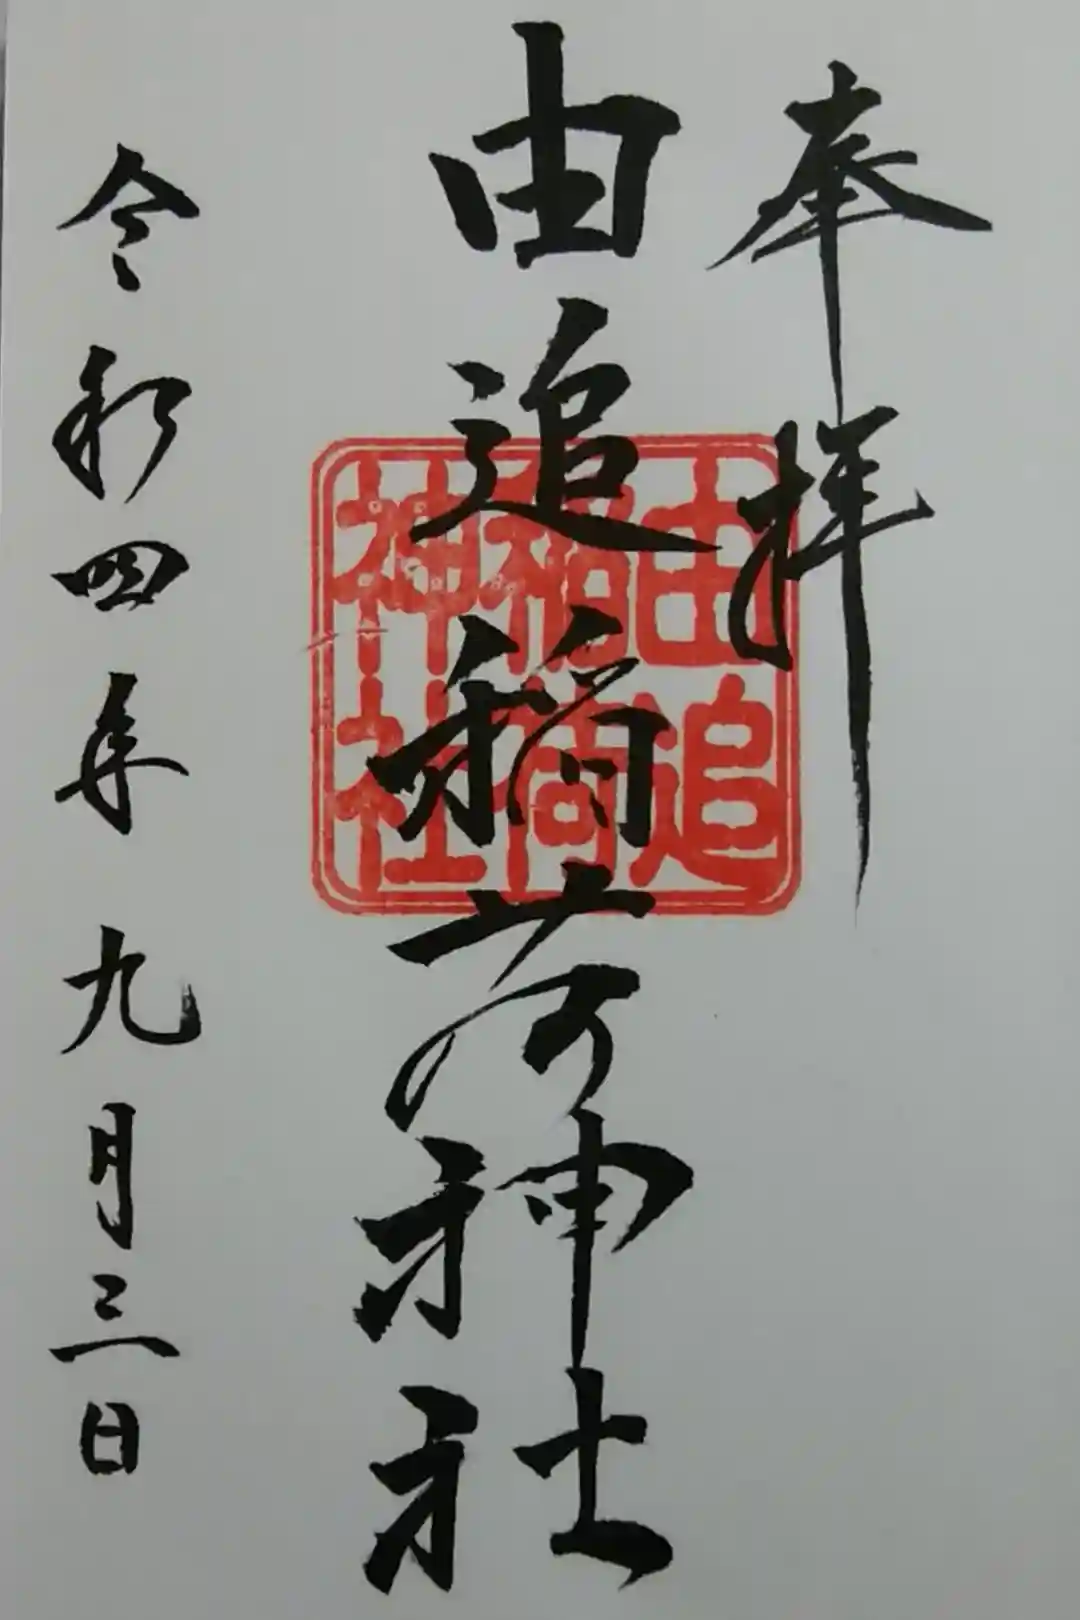 奉拝
由追稲荷神社
由追
稲荷
神社
令和四年九月三日